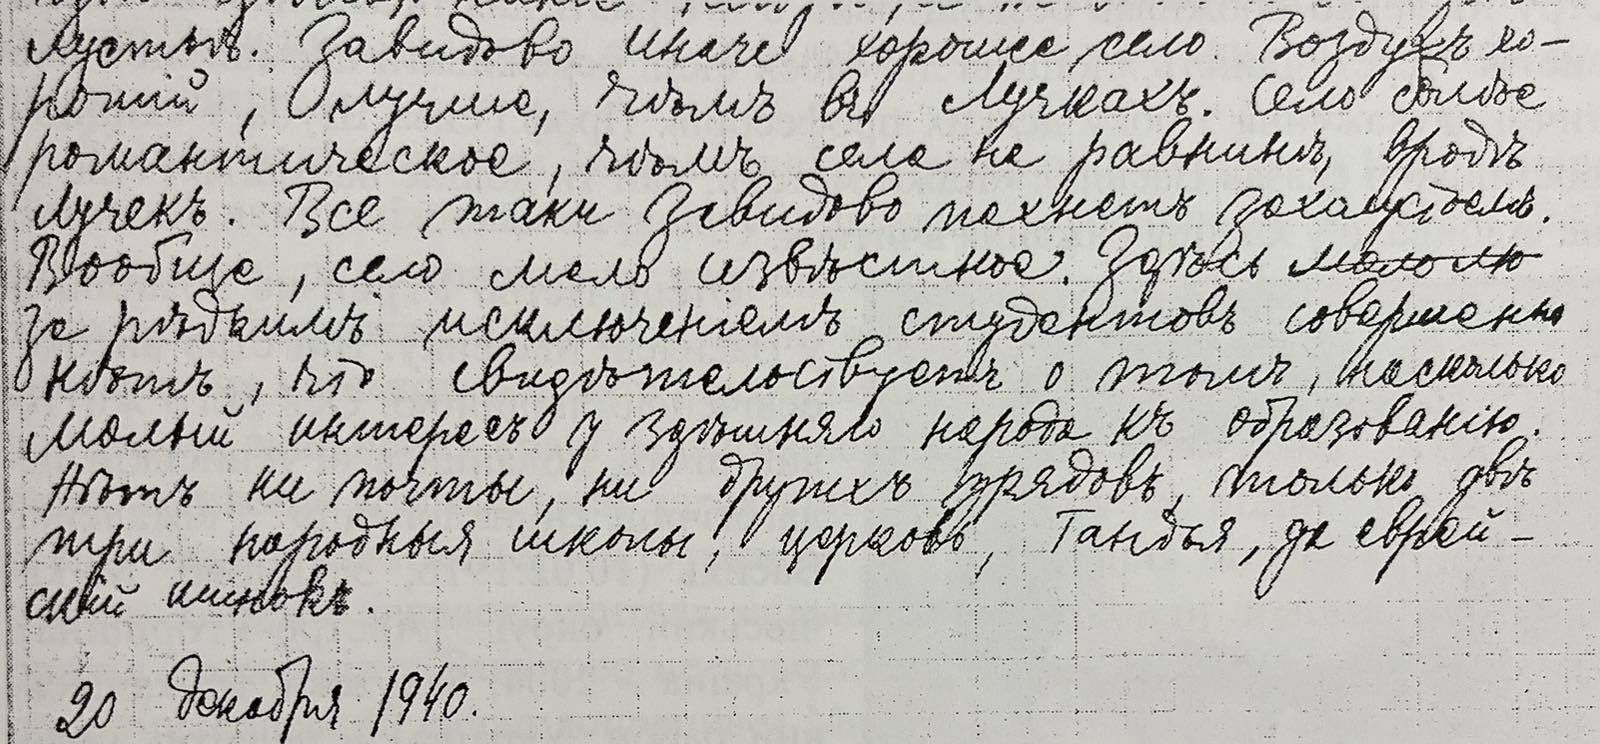 пустыя. Завидово иначе хорошее село. Воздухъ хо-
рошій, лучше, чѣмъ въ Лучкахъ. Село болѣе
романтическое, чѣмъ села на равнинѣ, вродѣ
Лучекъ. Все таки Завидово пахнетъ захолустьемъ.
Вообще, село мало извѣстное. Здѣсь мало лю
за рѣдкимъ исключеніемъ студентовъ совершенно
нѣтъ, что свидѣтельствуетъ о томъ, насколько
малый интересъ у здѣшняго народа къ образованію.
Нѣтъ ни почты, ни другихъ урядовъ, только двѣ
три народныя школы, церковь, Гандья, да еврей-
скій шинокъ.
20 декабря 1940.